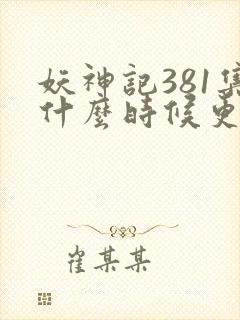 妖神記381集
什麼時候更
崔某某